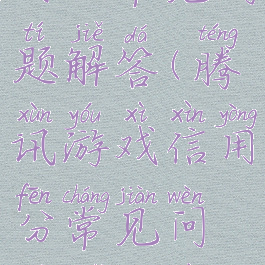 tí jiě dá téng
题解答(腾
xùn yóu xì xìn yòng
讯游戏信用
fēn cháng jiàn wèn
分常见问